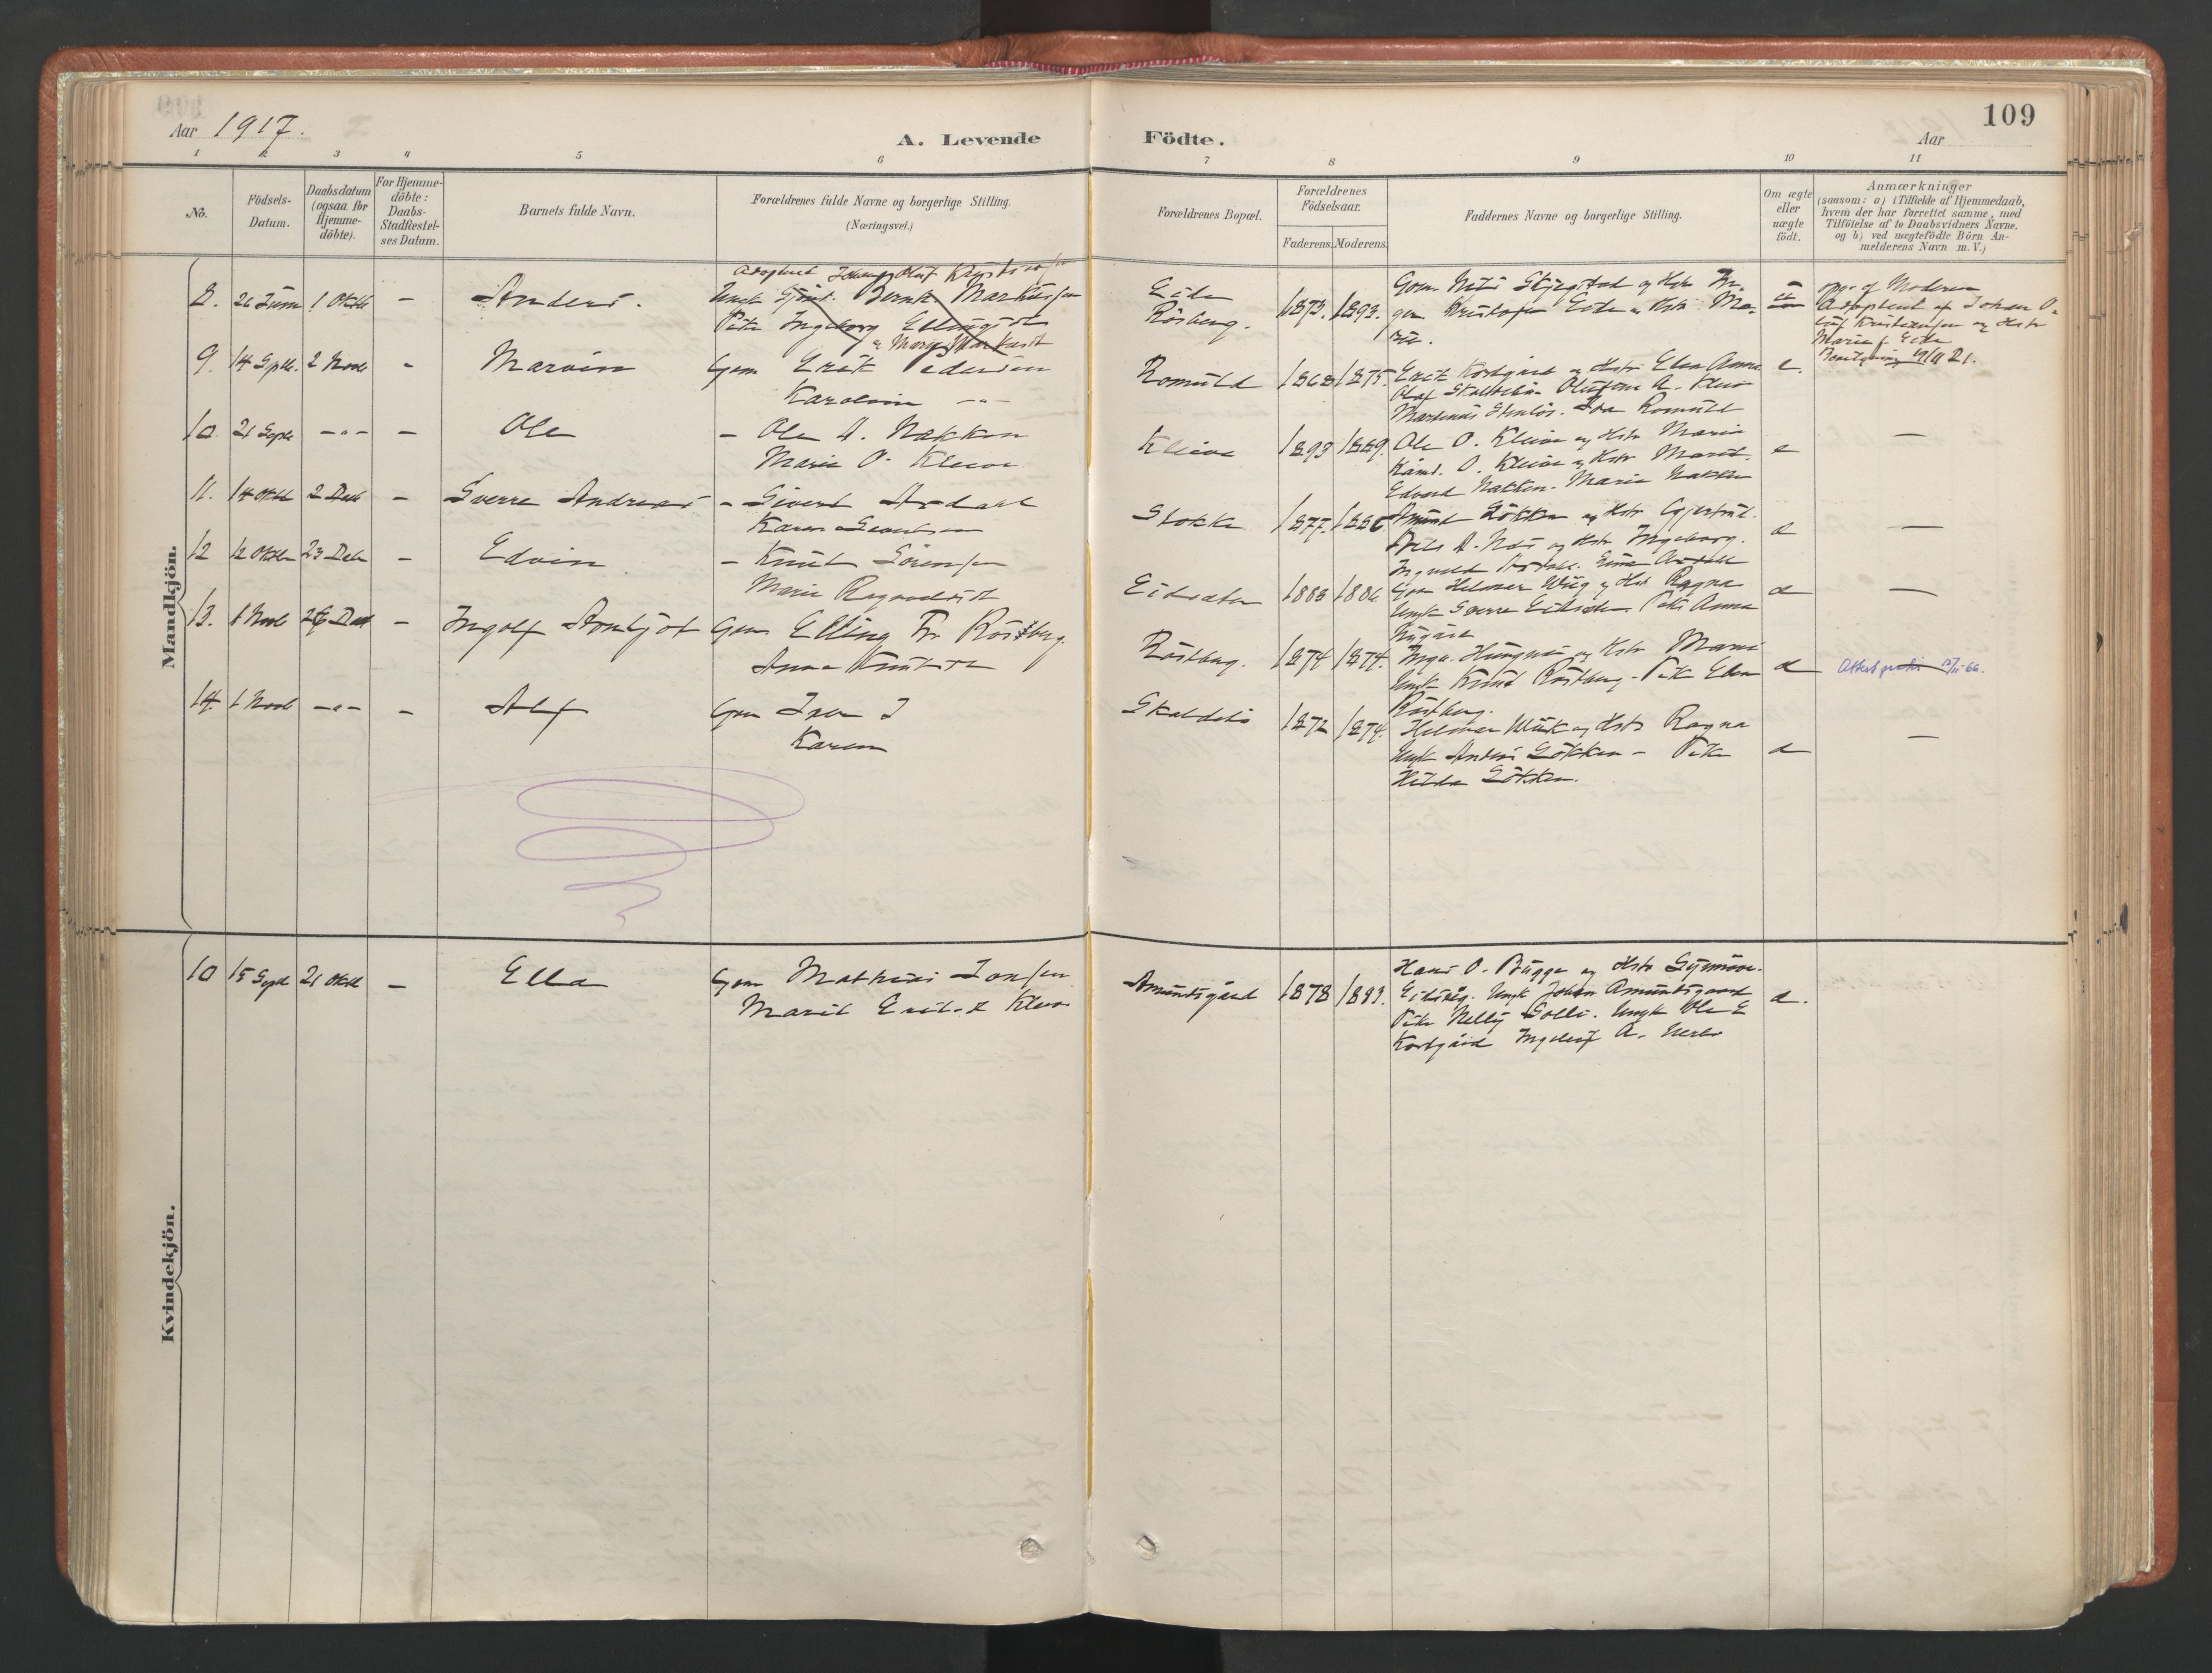 Aar 1917.
A. Levende Födte.
109
Aar
1 2 3 4 5 6 7 8 9 10 11
No.
Födsels-
Datum.
Daabsdatum
(ogsaa for
Hjemme-
döbte).
For Hjemme-
döbte:
Daabs-
Stadfæstel-
ses Datum.
Barnets fulde Navn.
Forældrenes fulde Navne og borgerlige Stilling.
(Næringsvei.)
Forældrenes Bopæl.
Forældrenes
Födselsaar.
Faderens. Moderens.
Faddernes Navne og borgerlige Stilling.
Om ægte
eller
uægte
födt.
Anmærkninger
(saasom: a) i Tilfælde af Hjemmedaab,
hvem der har forrettet samme, med
Tilföielse af to Daabsvidners Navne.
og b) ved uægtefödte Börn An-
melderens Navn m.V.)
Mandkjön.
8. 26 Juni 1 Oktb - Anders.
Adopteret Johan Oluf Kristensen
Ungk Bernt Markussen
Pike Ingeborg Ellingsdt
Eide
Rösberg.
1873. 1893.
Gom. Nils Skjegstad og Hstr
gom. Kristofer Eide og Hstr Ma-
rie.
opg. af Moderen
Adopteret af Johan O-
luf Kristensen og Hstr
Marie f. Eide
Bevilgning 19/11 21.
9. 14 Sptb. 2 Novb - Marvin
Gom Erik Pedersen
Karoline -"-
Romuld 1868 1875.
Erik Kortgård og Hstr Elen Anna
Olaf Skaldebø Olufine A. Kleive
Martinus Stenløs. Ida Romuld
e.
10. 21 Septb -"- - Ole
- Ole A. Nakken
Marie O. Kleive
Kleive 1893 1889.
Ole O. Kleive og Hstr Marie
O. Kleive og Hstr Marit.
Edvard Nakken. Marie Nakken
e
—
11. 14 Oktb 2 Decb - Sverre Andreas
- Sivert Årdal
Karen Sivertsen
Stokke 1877. 1880
Amund Lökken og Hstr Gjertrud.
Nils A. Næs og Hstr Ingeborg.
Ingvald Årdal.
e
—
12 12 Oktbr 23 Debr - Edvin
- Knut Sörensen
Marie Ragnvaldsdt
Eidsæter 1883 1886
Gom Helmer Wiig og Hstr Ragna
Ungk Sverre Eidsæter. Pike Anna
Nygård
e
—
13. 8 Novb 26 Decb - Ingolf Arnljot
Gom Elling Fr. Röstberg.
Anna Knutsdt
Röstberg. 1874 1874.
Hungnes og Hstr Marie
Ungk Knud Röstberg - Pike Elen
Röstberg.
e
14. 1 Novb -"- - Alf
Gom Iver J
Karen
Skaldebö 1872 1874.
Helmer Wiik og Hstr Ragna
Ungk Anders Lökken - Pike
Hilda Lökken.
e
—
Kvindekjön.
10 15 Septb 21 Oktb - Ella
Gom Mathias Jonsen
Marit Eriksdt Kleive
Amundsgård 1878 1893.
Hans O. Bugge og Hstr
Eidsvåg. Ungk Johan Amundsgaard
Pike Nelly Solli. Ungk Ole E
Kortgård Ingeleif A.
e.